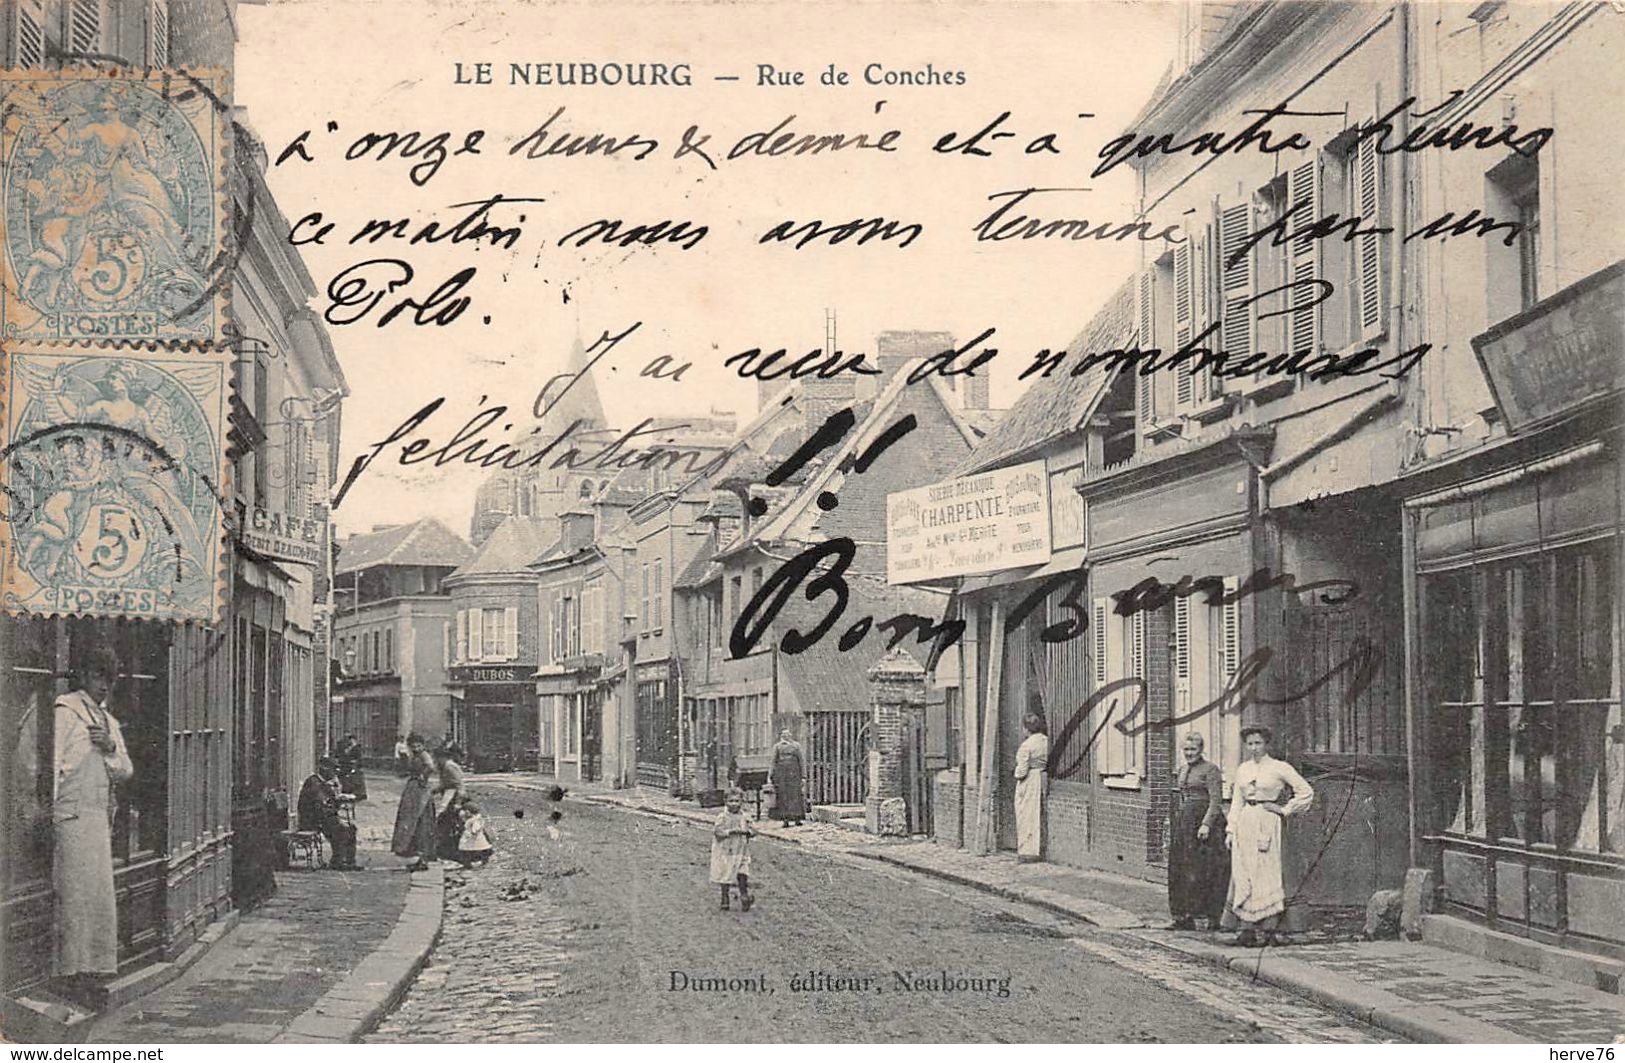 LE NEUBOURG — Rue de Conches
à onze heures & demie et à quatre heures
ce matin nous avons terminé par un
Polo.
J'ai reçu de nombreuses
félicitations!!
Bons Baisers
POSTES
5c
POSTES
5c
CAFÉ
DUBOS
SCIERIE MÉCANIQUE
CHARPENTE
FOURNITURE
POUR
TOUS
Dumont, éditeur, Neubourg
www.delcampe.net
herve76